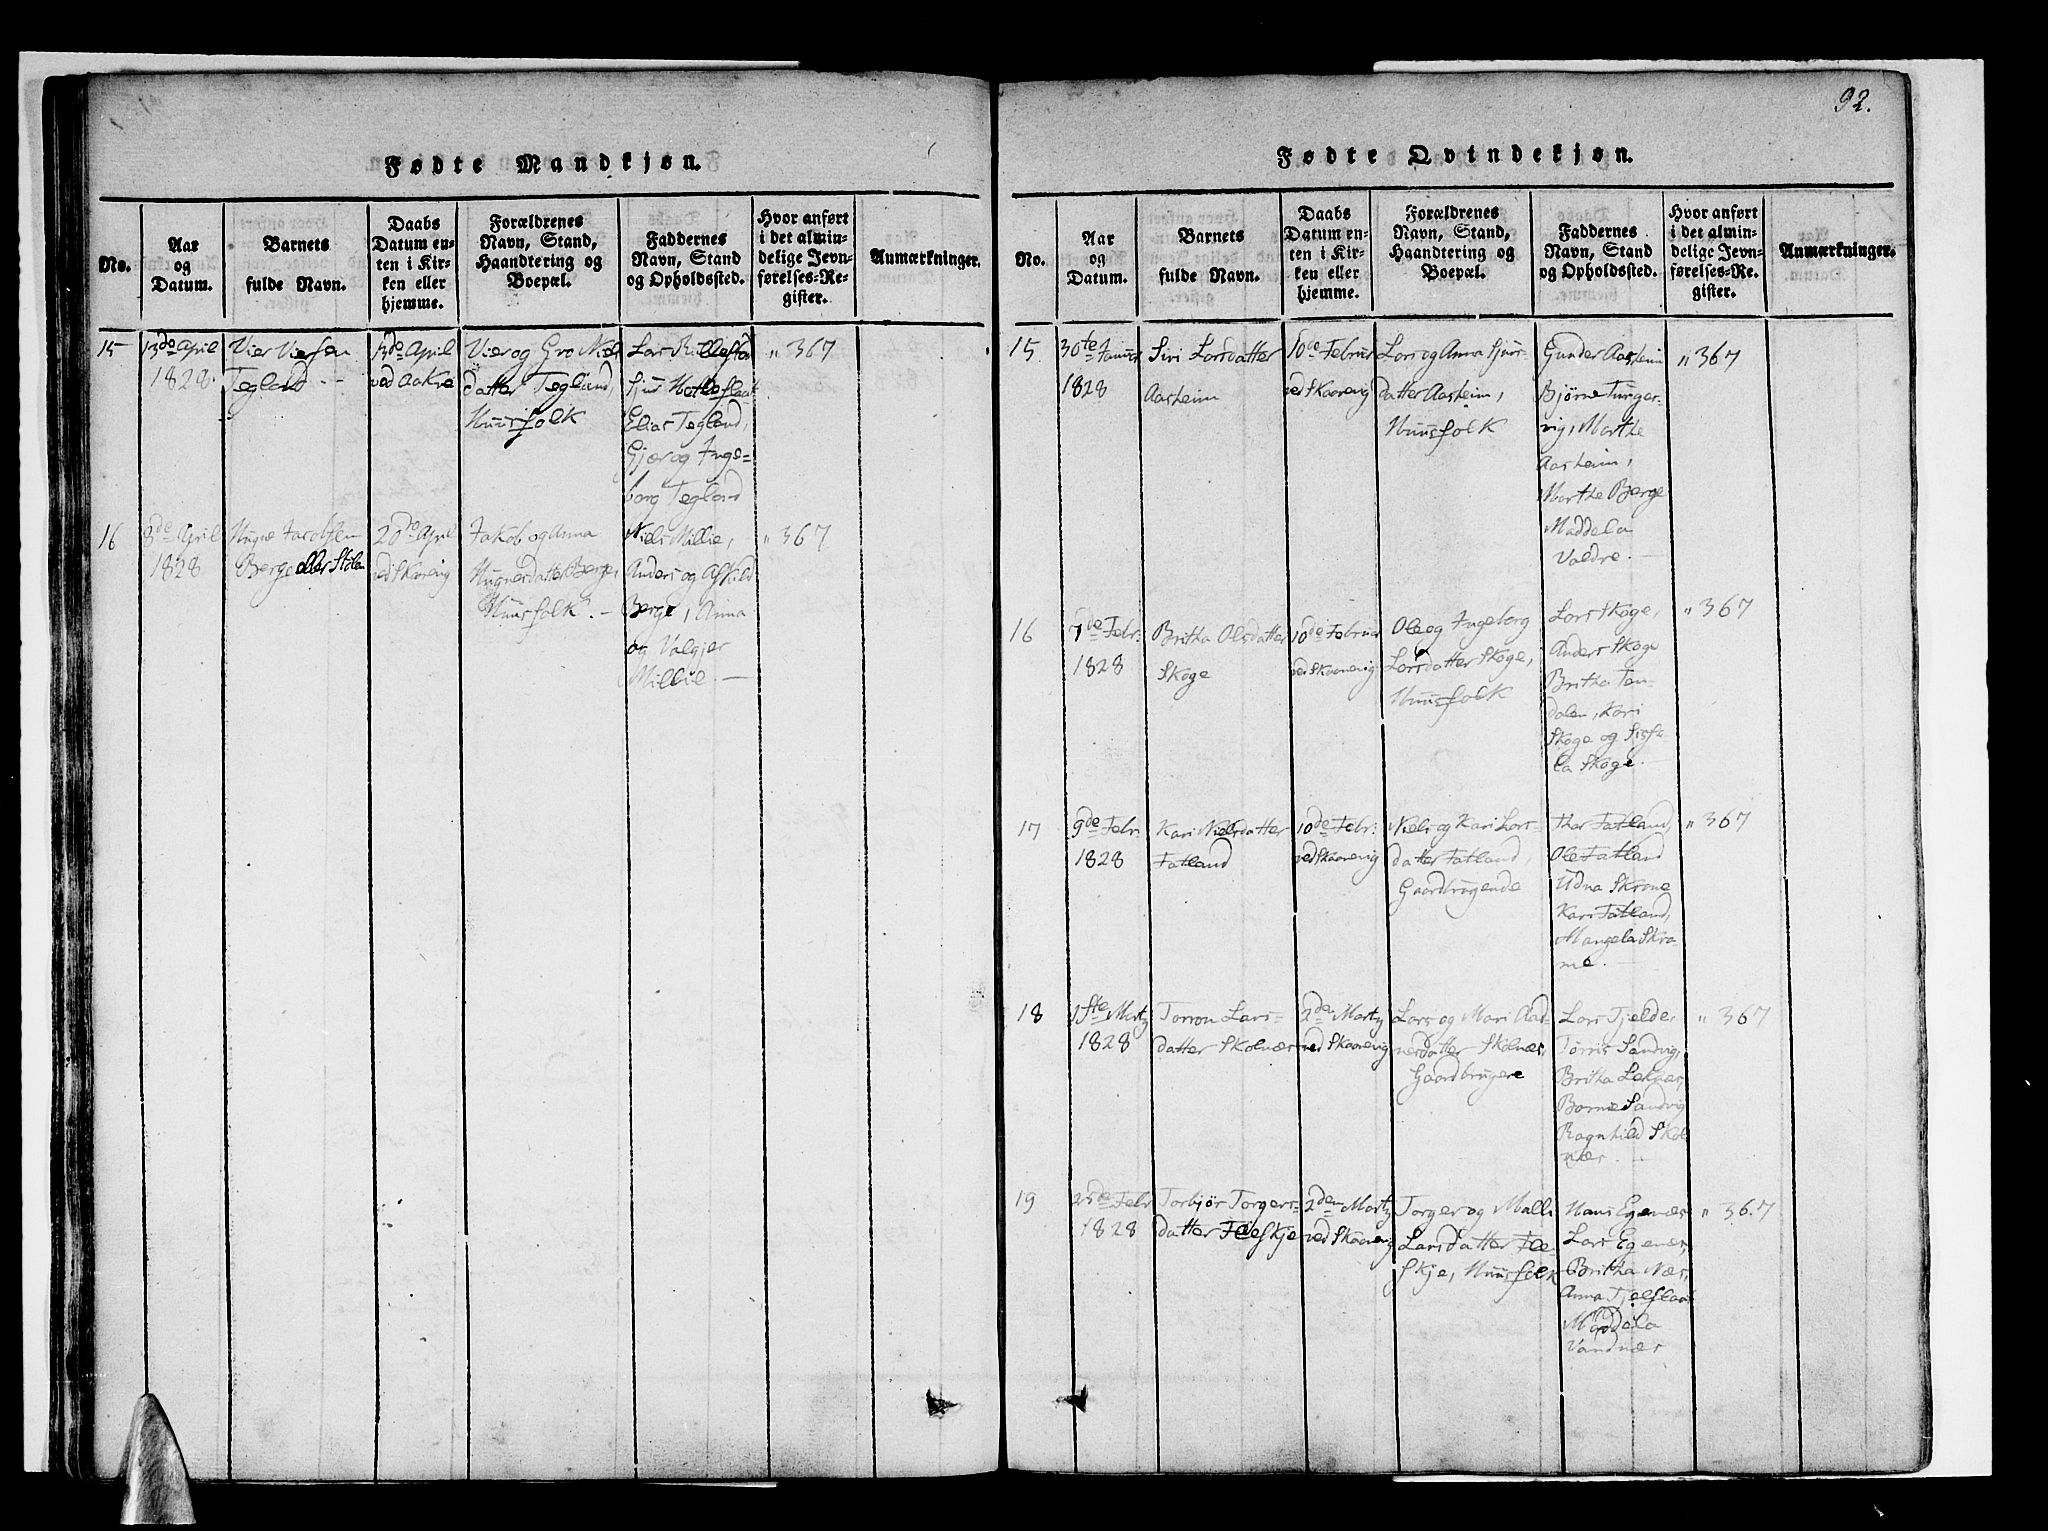 92.
Fødte Mandkjøn.
No.
Aar
og
Datum.
Barnets
fulde Navn.
Daabs
Datum en-
ten i Kir-
ken eller
hjemme.
Forældrenes
Navn, Stand,
Haandtering og
Boepæl.
Faddernes
Navn, Stand
og Opholdssted.
Hvor anført
i det almin-
delige Jevn-
førelses-Re-
gister.
Anmærkninger.
15
13de April
1828.
Vier Viersen
Tegland
13de April
ved Aakre
Vier og Gro Niels
datter Tegland,
Huusfolk
Lars
Elias Tegland,
Gjær og Inge-
borg Tegland
" 367
16
8de April
1828
Hugne Jacobsen
Berge eller Stolen
20de April
ved Skaanevig
Jakob og Anna
Hugnesdatter Berge,
Huusfolk. –
Niels Millie,
Anders og Askild
Berge, Anna
og Valgjer
Millie. –
" 367
Fødte Qvindekjøn.
No.
Aar
og
Datum.
Barnets
fulde Navn.
Daabs
Datum en-
ten i Kir-
ken eller
hjemme.
Forældrenes
Navn, Stand,
Haandtering og
Boepæl.
Faddernes
Navn, Stand
og Opholdssted.
Hvor anført
i det almin-
delige Jevn-
førelses-Re-
gister.
Anmærkninger.
15
30te Januar
1828
Siri Larsdatter
Aasheim
10de Februar
ved Skaanevig
Lars og Anna Sjurs-
datter Aasheim,
Huusfolk
Gunder Aasheim
Bjørne Tunger-
vig, Marthe
Aasheim,
Marthe Berge
Maddela
Valdre. –
" 367
16
7de Febr:
1828
Britha Olsdatter
Skoge
10de Februar
ved Skaanevig
Ole og Ingeborg
Larsdatter Skoge,
Huusfolk
Lars Skoge,
Anders Skoge
Britha Ton-
dalen, Kari
Skoge og Sisse-
la Skoge. –
" 367
17
9de Febr:
1828
Kari Nielsdatter
Fatland
10de Febr:
ved Skaanevig
Niels og Kari Lars-
datter Fatland,
Gaardbrugende
Thor Fatland,
Ole Fatland
Udna Skrone
Kari Fatland,
Mangela Skra
ne. –
" 367
18
1ste Martz
1828
Torron Lars-
datter Skolnæs
2den Martz
ved Skaanevig
Lars og Mari Aad-
nesdatter Skolnæs,
Gaardbrugere
Lars Fjelde,
Tørris Sandvig,
Britha Leknæs,
Barnie Sandvig
Ragnhild Skol
næs. –
" 367
19
25de Febr
1828
Torbjør Torgers-
datter Fleskje
2den Martz
ved Skaanevig
Torger og Malli
Larsdatter Fle-
skje, Huusfolk
Hans Egenæs
Lars Egenæs,
Britha Næs,
Anna Tjelflaat
Maddela
Vandnæs
" 367